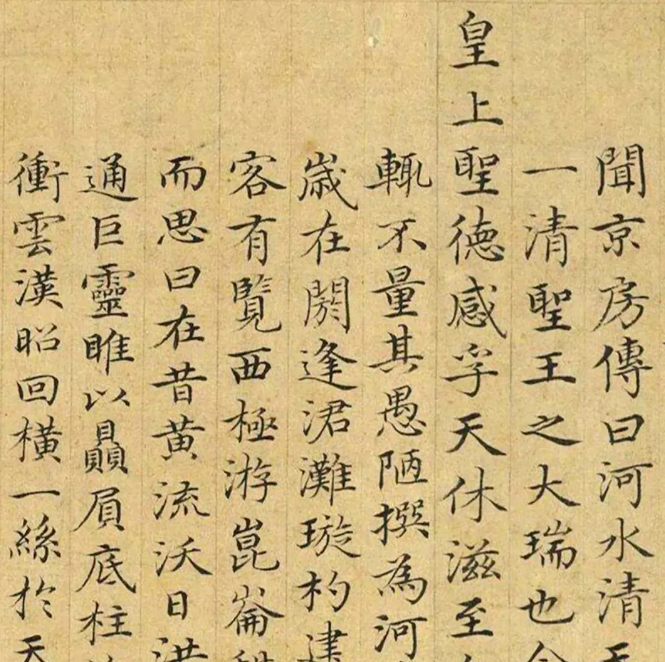 聞京房傳曰河水清天
一清聖王之大瑞也今
皇上聖德感孚天休滋至
輒不量其愚陋撰為河
歲在閼逢涒灘璇杓建
客有覽西極游崑崙
而思曰在昔黃流沃日洪
通巨靈雎以贔屓底柱
衝雲漢昭回橫一絲於天